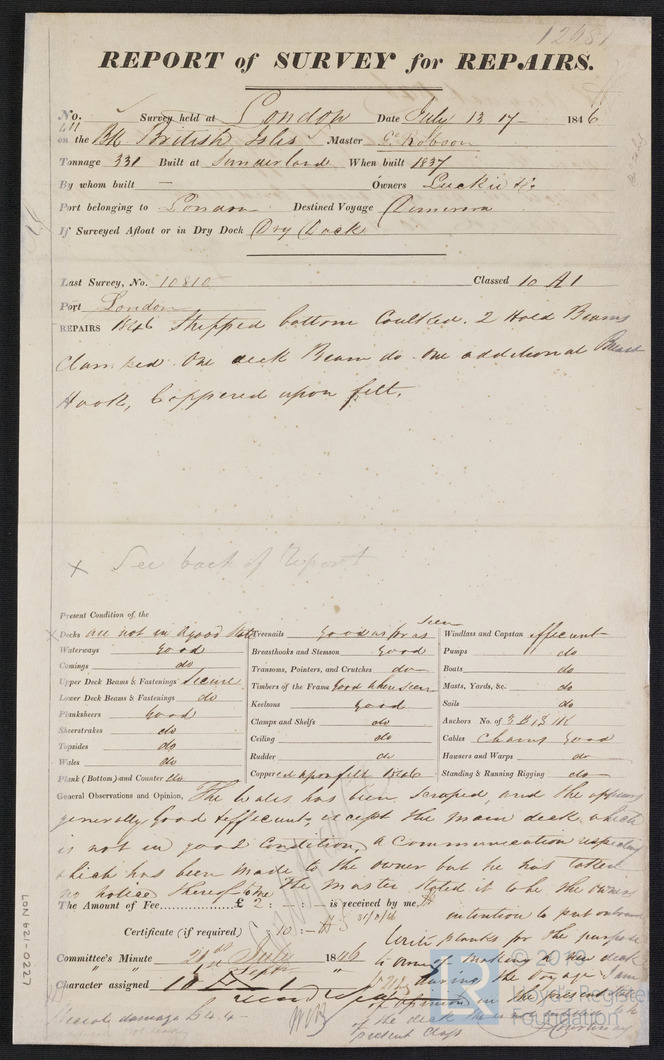 REPORT of SURVEY for REPAIRS.
No. Survey held at London Date July 13 17 1846
on the Bk British Isles Master Robson
Tonnage 331 Built at Sunderland When built 1837
By whom built — Owners Luckie & Co
Port belonging to London Destined Voyage Demerara
If Surveyed Afloat or in Dry Dock Dry Dock
Last Survey, No. 10810 Classed 10 A1
Port London
REPAIRS 1846 Stripped bottom Caulked. 2 Hold Beams
Clamped. One deck Beam do. One additional Breast
Hook, Coppered upon felt.
x See back of report
Present Condition of the
Decks are not in a good State
Waterways good
Comings do
Upper Deck Beams & Fastenings Secure
Lower Deck Beams & Fastenings do
Planksheers Good
Sheerstrakes do
Topsides do
Wales do
Plank (Bottom) and Counter do
Treenails Good as far as Seen
Breasthooks and Stemson Good
Transoms, Pointers, and Crutches do
Timbers of the Frame Good where seen
Keelsons Good
Clamps and Shelfs do
Ceiling do
Rudder do
Coppered upon felt 1846
Windlass and Capstan efficient
Pumps do
Boats do
Masts, Yards, &c. do
Sails do
Anchors No. of 3 B 1 S 1 K
Cables Chains Good
Hausers and Warps do
Standing & Running Rigging do
General Observations and Opinion, The Wales has been Scraped, and the
generally Good & efficient, except the main deck which
is not in good Condition, a Communication respecting
which has been made to the owner but he has taken
no notice thereof The Master stated it to be the owners
The Amount of Fee £ 2 : - : - is received by me,
intention to put
Certificate (if required) : 10 : -
planks for the purpose
Committee's Minute 21st July 1846
of making a new deck
" 1st Septr "
during the voyage I am
Character assigned
of opinion in the present state
of the deck
present Class
LON 621-0227
© 2019
Lloyd's Register
Foundation